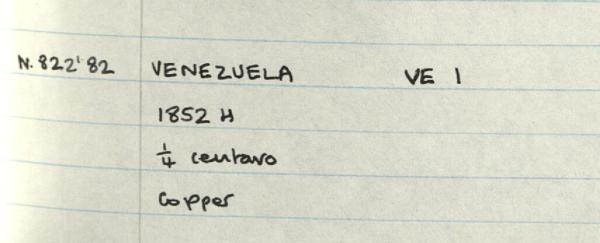 N.822'82 VENEZUELA VE 1
1852 H
1/4 centavo
Copper